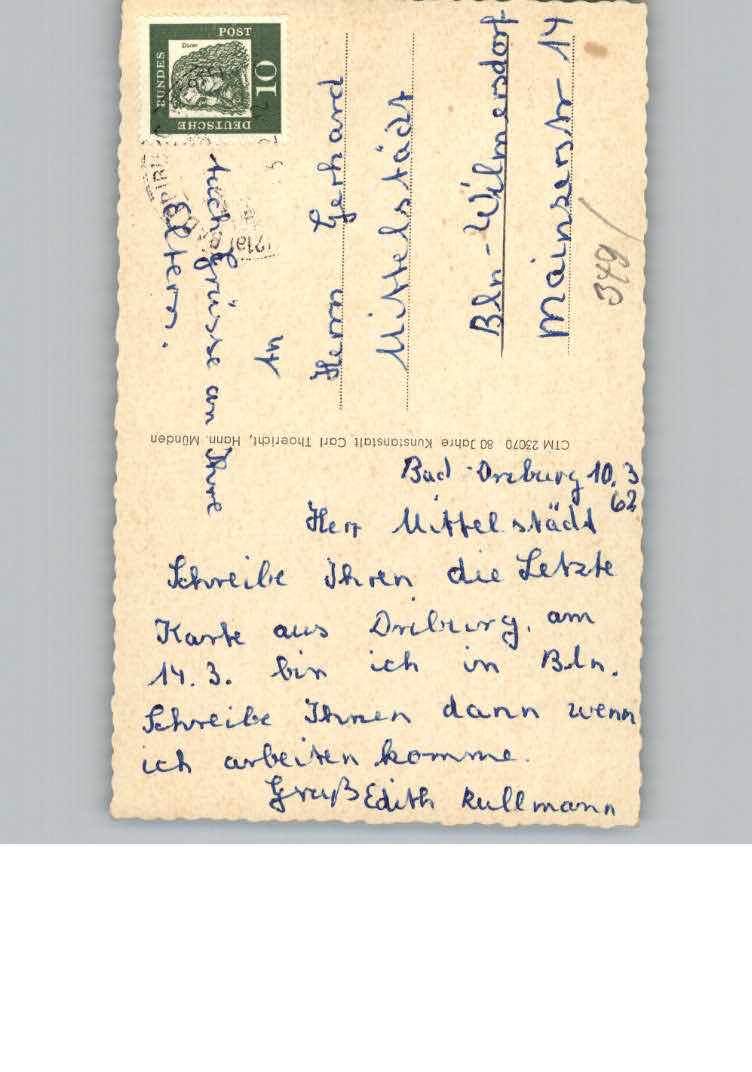 Bad Driburg 10. 3
62
Herr Mittelstädt
Schreibe Ihren die Letzte
Karte aus Driburg, am
14. 3. bin ich in Bln.
Schreibe Ihnen dann wenn
ich arbeiten komme.
Gruß Edith Kullmann
Auch Grüsse an Ihre
Eltern.
CTM 23070 80 Jahre Kunstanstalt Carl Thoericht, Hann. Münden
Herrn Gerhard
Mittelstädt
Bln-Wilmersdorf
Mainzerstr 14
379/
DEUTSCHE
BUNDES
POST
10
Dürer
(21a)